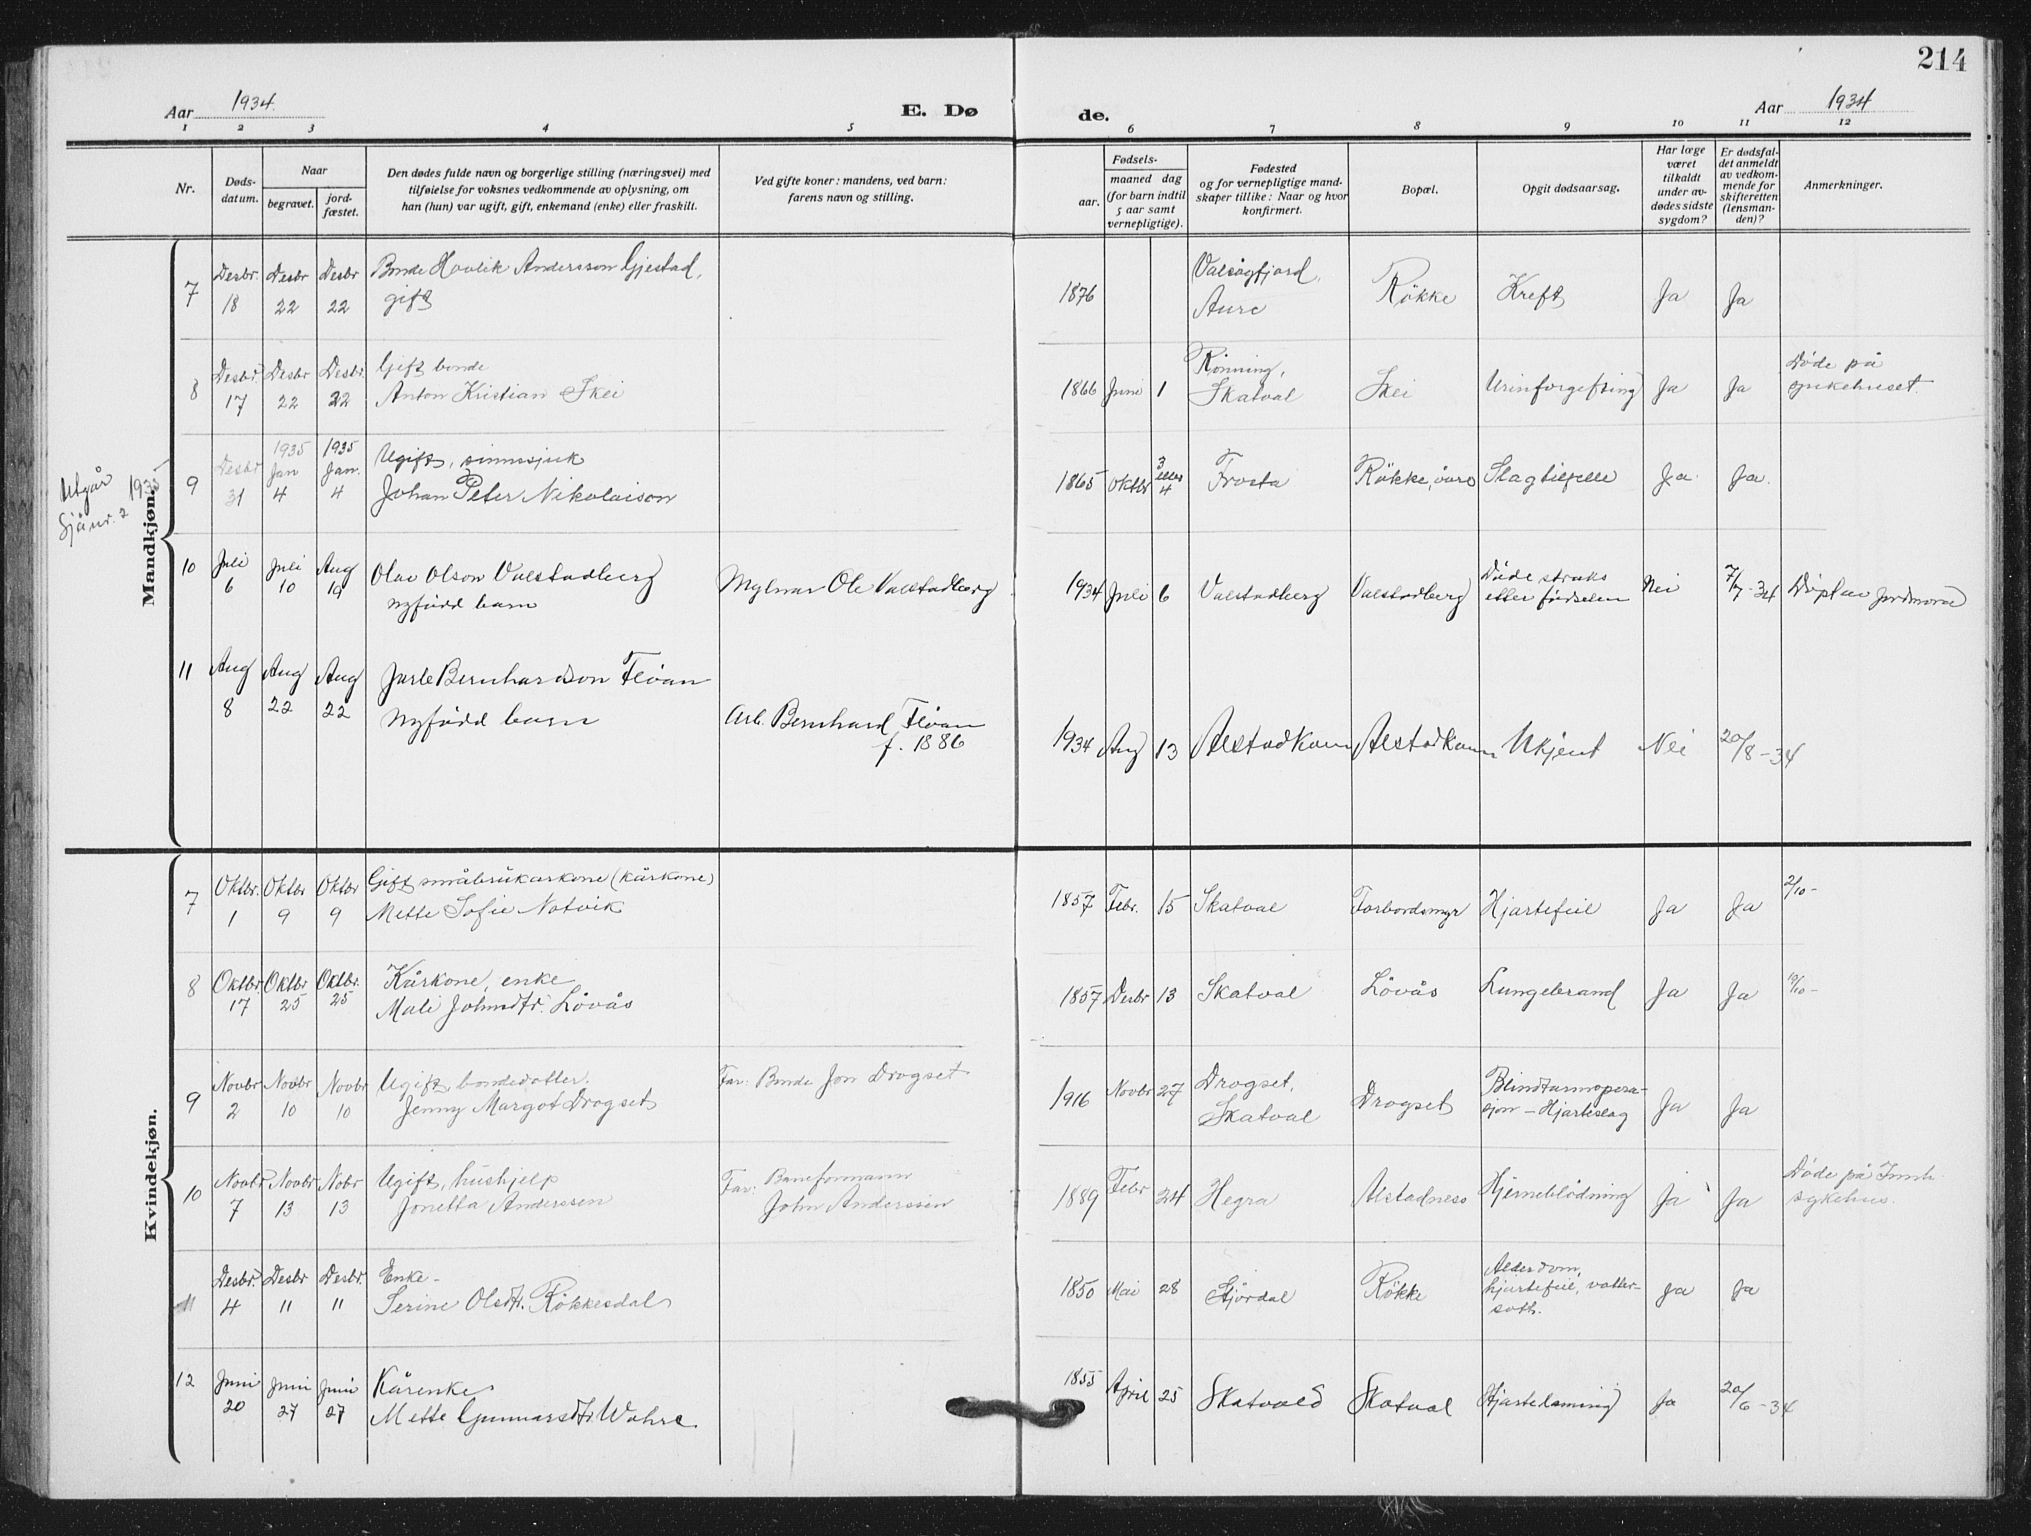 214
Aar 1934
E. Dø
de.
Aar 1934
1 2 3 4 5 6 7 8 9 10 11 12
Nr.
Døds-
datum.
Naar
begravet.
jord-
fæstet.
Den dødes fulde navn og borgerlige stilling (næringsvei) med
tilføielse for voksnes vedkommende av oplysning, om
han (hun) var ugift, gift, enkemand (enke) eller fraskilt.
Ved gifte koner: mandens, ved barn:
farens navn og stilling.
Fødsels-
aar.
maaned dag
(for barn indtil
5 aar samt
vernepligtige).
Fødested
og for vernepligtige mand-
skaper tillike: Naar og hvor
konfirmert.
Bopæl.
Opgit dødsaarsag.
Har læge
været
tilkaldt
under av-
dødes sidste
sygdom?
Er dødsfal-
det anmeldt
av vedkom-
mende for
skifteretten
(lensman-
den)?
Anmerkninger.
Mandkjøn.
Utgår
Sjå nr. 2 1935
7 Desbr 18 Desbr 22 Desbr 22 Bonde Andersson Gjestad,
gift
1876 Valsøgfjord,
Aure Røkke Kreft Ja Ja
8 Desbr 17 Desbr 22 Desbr. 22 Gift bonde
Anton Kristian Skei
1866 Juni 1 Rønning,
Skatval Skei Urinforgiftning Ja Ja Døde på
sjukehuset.
9 Desbr 31 1935 Jan 4 1935 Jan. 4 Ugift, sinnssjuk
Johan Peter Nikolaison
1865 Oktbr 3 eller 4 Frosta Røkke, Slagtilfelle Ja Ja.
10 Juli 6 Juli 10 Aug 19 Olav Olson Valstadberg
nyfødd barn
Mylnar Ole Valstadberg
1934 Juli 6 Valstadberg Valstadberg Døde straks
etter fødselen Nei 7/7-34 Døpt av jordmora
11 Aug 8 Aug 22 Aug 22 Jarle Bernhardson Fløan
Nyfødd barn
Arb. Bernhard Fløan
f. 1886
1934 Aug 13 Alstadkam Ukjent Nei 20/8-34
Kvindekjøn.
7 Oktbr. 1 Oktbr 9 Oktbr 9 Gift småbrukarkone (kårkone)
Mette Sofie Notvik
1857 Febr. 15 Skatval Forbordsmyr Hjartefeil Ja Ja 2/10-
8 Oktbr. 17 Oktbr 25 Oktbr. 25 Kårkone, enke
Mali Johnsdtr. Løvås
1857 Desbr 13 Skatval Løvås Lungebrand Ja Ja 19/10-
9 Novbr 2 Novbr 10 Novbr 10 Ugift, bondedatter.
Jenny Margot Drogset
Far: Bonde Jon Drogset
1916 Novbr 27 Drogset,
Skatval Drogset Blindtarmopera-
sjon - Hjarteslag Ja Ja
10 Novbr 7 Novbr 13 Nobr 13 Ugift, hushjelp
Jonetta Anderssen
Far: Baneformann
John Anderssen
1889 Febr 24 Hegra Alstadness Hjerneblødning Ja Ja Døde på Innh.
sykehus.
11 Desbr. 4 Desbr 11 Desbr. 11 Enke -
Serine Olsdtr. Røkkesdal
1850 Mai 28 Stjørdal Røkke Alderdom,
hjartefeil, vatter-
sott. Ja Ja
12 Juni 20 Juni 27 Juni 27 Kårenke
Mette Gunnarsdtr Wahre
1855 April 25 Skatvald Skatval Hjartelaming Ja 20/6-34